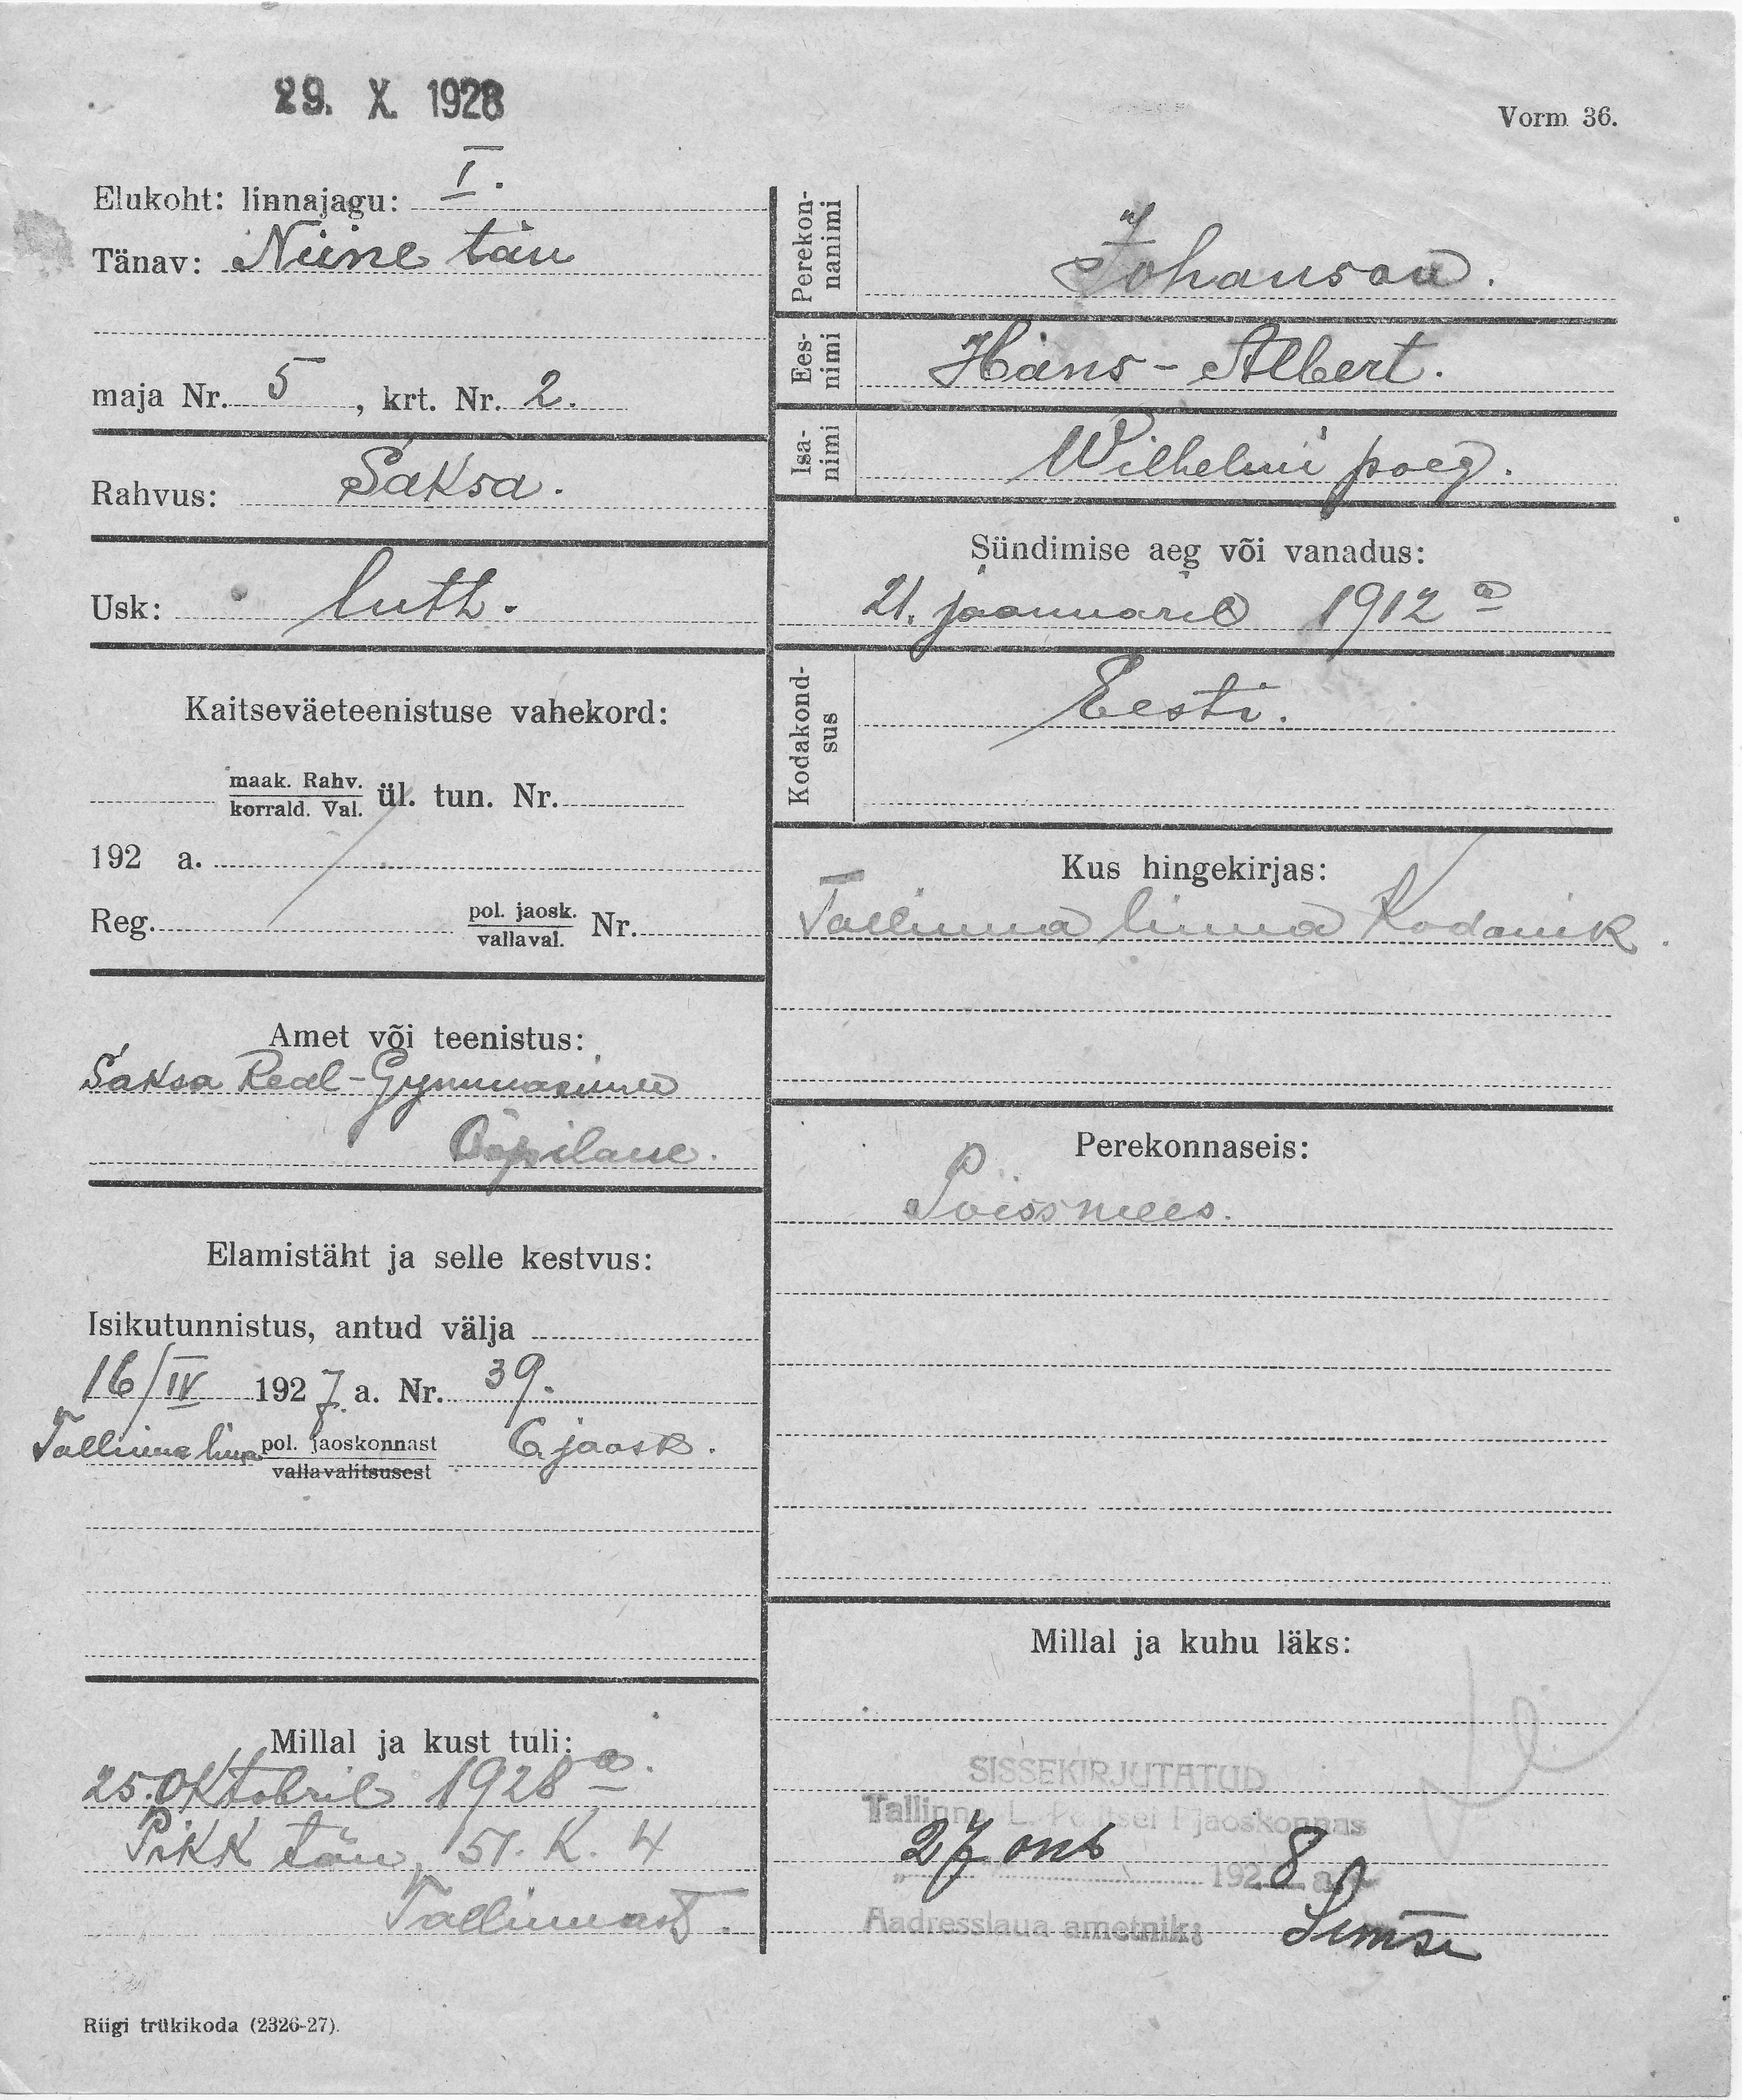 29. X. 1928
Vorm 36.
Elukoht: linnajagu: I.
Tänav: Niine tän
maja Nr. 5, krt. Nr. 2.
Rahvus: Saksa.
Usk: luth.
Kaitseväeteenistuse vahekord:
maak. Rahv.
korrald. Val. ül. tun. Nr.
192 a.
Reg. pol. jaosk.
vallaval. Nr.
Amet või teenistus:
Saksa Real-Gymnaasiumi
Õpilane.
Elamistäht ja selle kestvus:
Isikutunnistus, antud välja
16/IV 1927 a. Nr. 39.
Tallinna linna pol. jaoskonnast 6. jaosk.
vallavalitsusest
Millal ja kust tuli:
25. Oktobril 1928 a.
Pikk tän, 51. K. 4
Tallinnast.
Riigi trükikoda (2326-27).
Perekon-
nanimi
Johanson.
Ees-
nimi
Hans-Albert.
Isa-
nimi
Wilhelmi poeg.
Sündimise aeg või vanadus:
21. jaanuaril 1912 a
Kodakond-
sus
Eesti.
Kus hingekirjas:
Tallinna linna Kodanik.
Perekonnaseis:
Poissmees.
Millal ja kuhu läks:
SISSEKIRJUTATUD
Tallinna L. Politsei I jaoskonnas
27 okt 1928 a.
Aadresslaua ametnik: